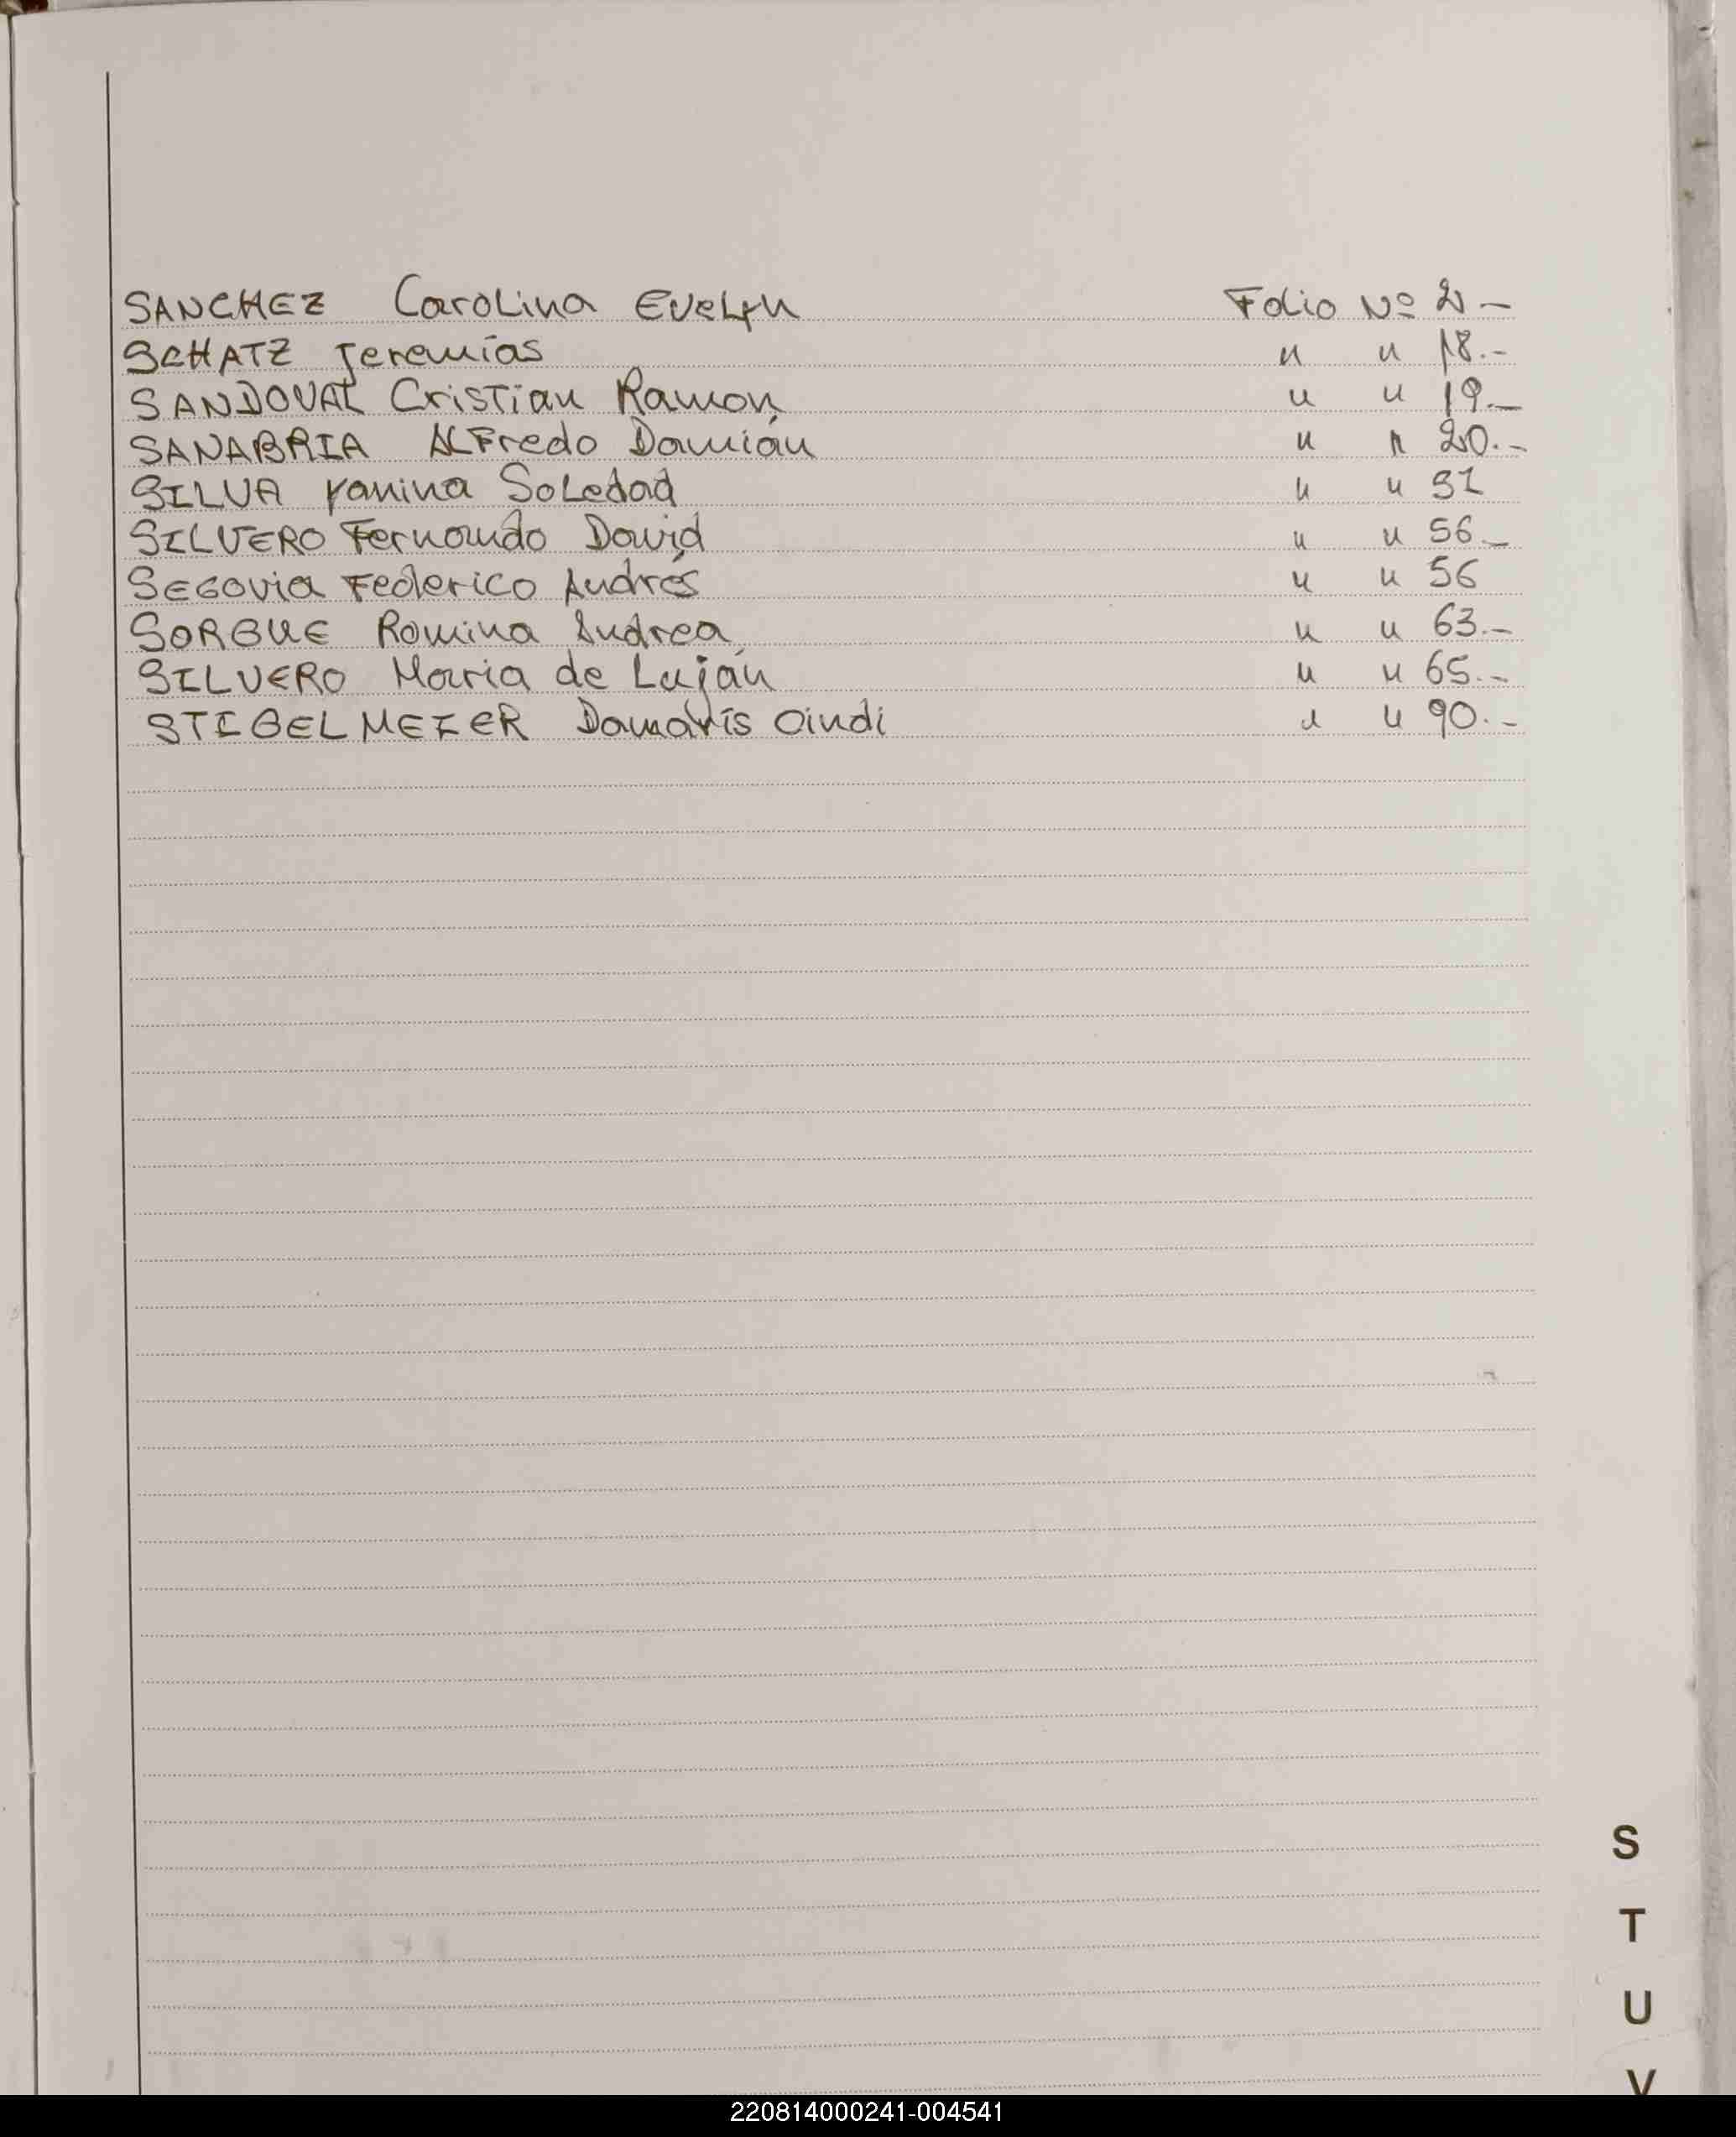 SANCHEZ Carolina Evelyn Folio Nº 2-
SCHATZ Jeremías " " 18.-
SANDOVAL Cristian Ramon " " 19.-
SANABRIA Alfredo Damián " " 20.-
SILVA Yanina Soledad " " 31
SILVERO Fernando David " " 56.-
SEGOVIA Federico Andrés " " 56
SORGUE Romina Andrea " " 63.-
SILVERO Maria de Luján " " 65.-
STIBELMEIER Damarís Cindi " " 90.-
S
T
U
V
220814000241-004541